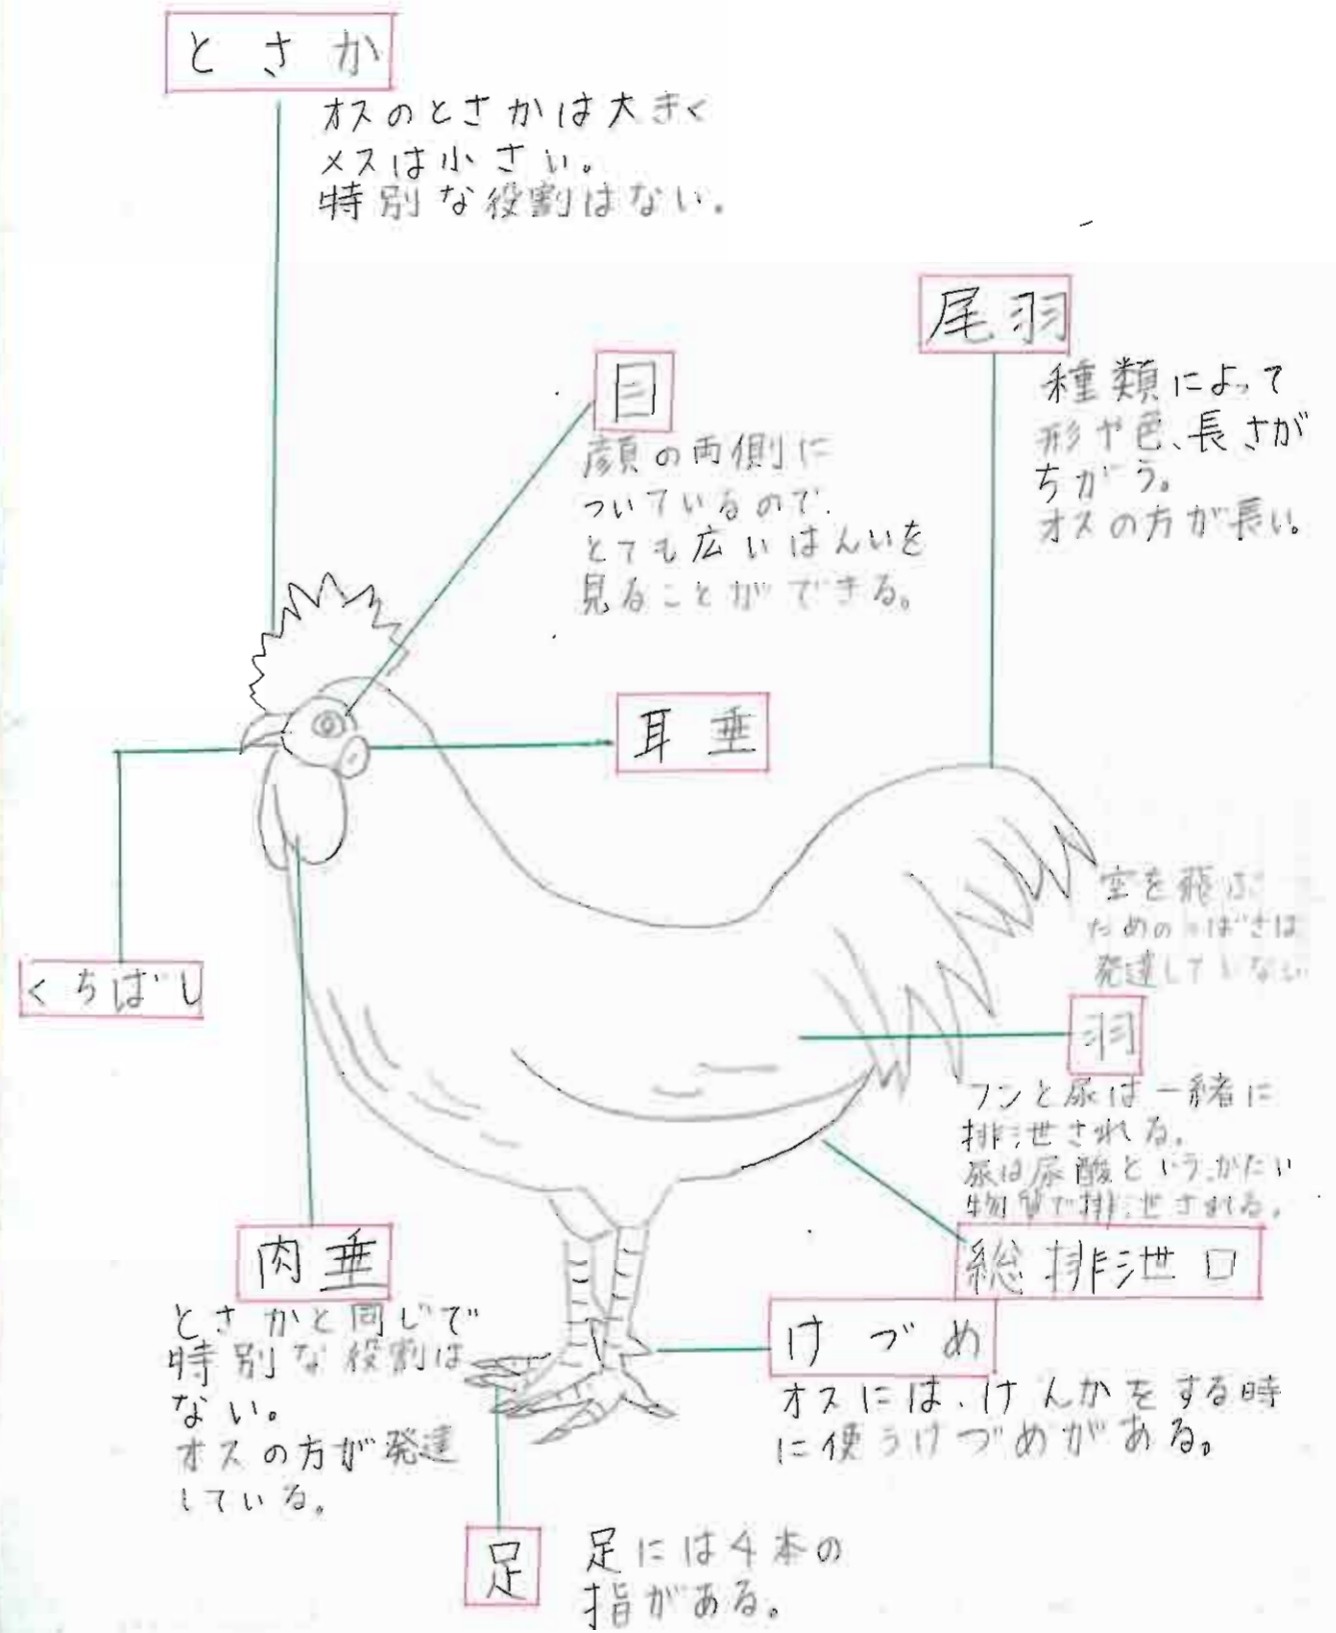 とさか
オスのとさかは大きく
メスは小さい。
特別な役割はない。
尾羽
種類によって
形や色、長さが
ちがう。
オスの方が長い。
目
顔の両側に
ついているので、
とても広いはんいを
見ることができる。
耳垂
くちばし
空を飛ぶ
ためのつばさは
発達していない
羽
フンと尿は一緒に
排泄される。
尿は尿酸という、かたい
物質で排泄される。
総排泄口
肉垂
とさかと同じで
特別な役割は
ない。
オスの方が発達
している。
けづめ
オスには、けんかをする時
に使うけづめがある。
足
足には4本の
指がある。